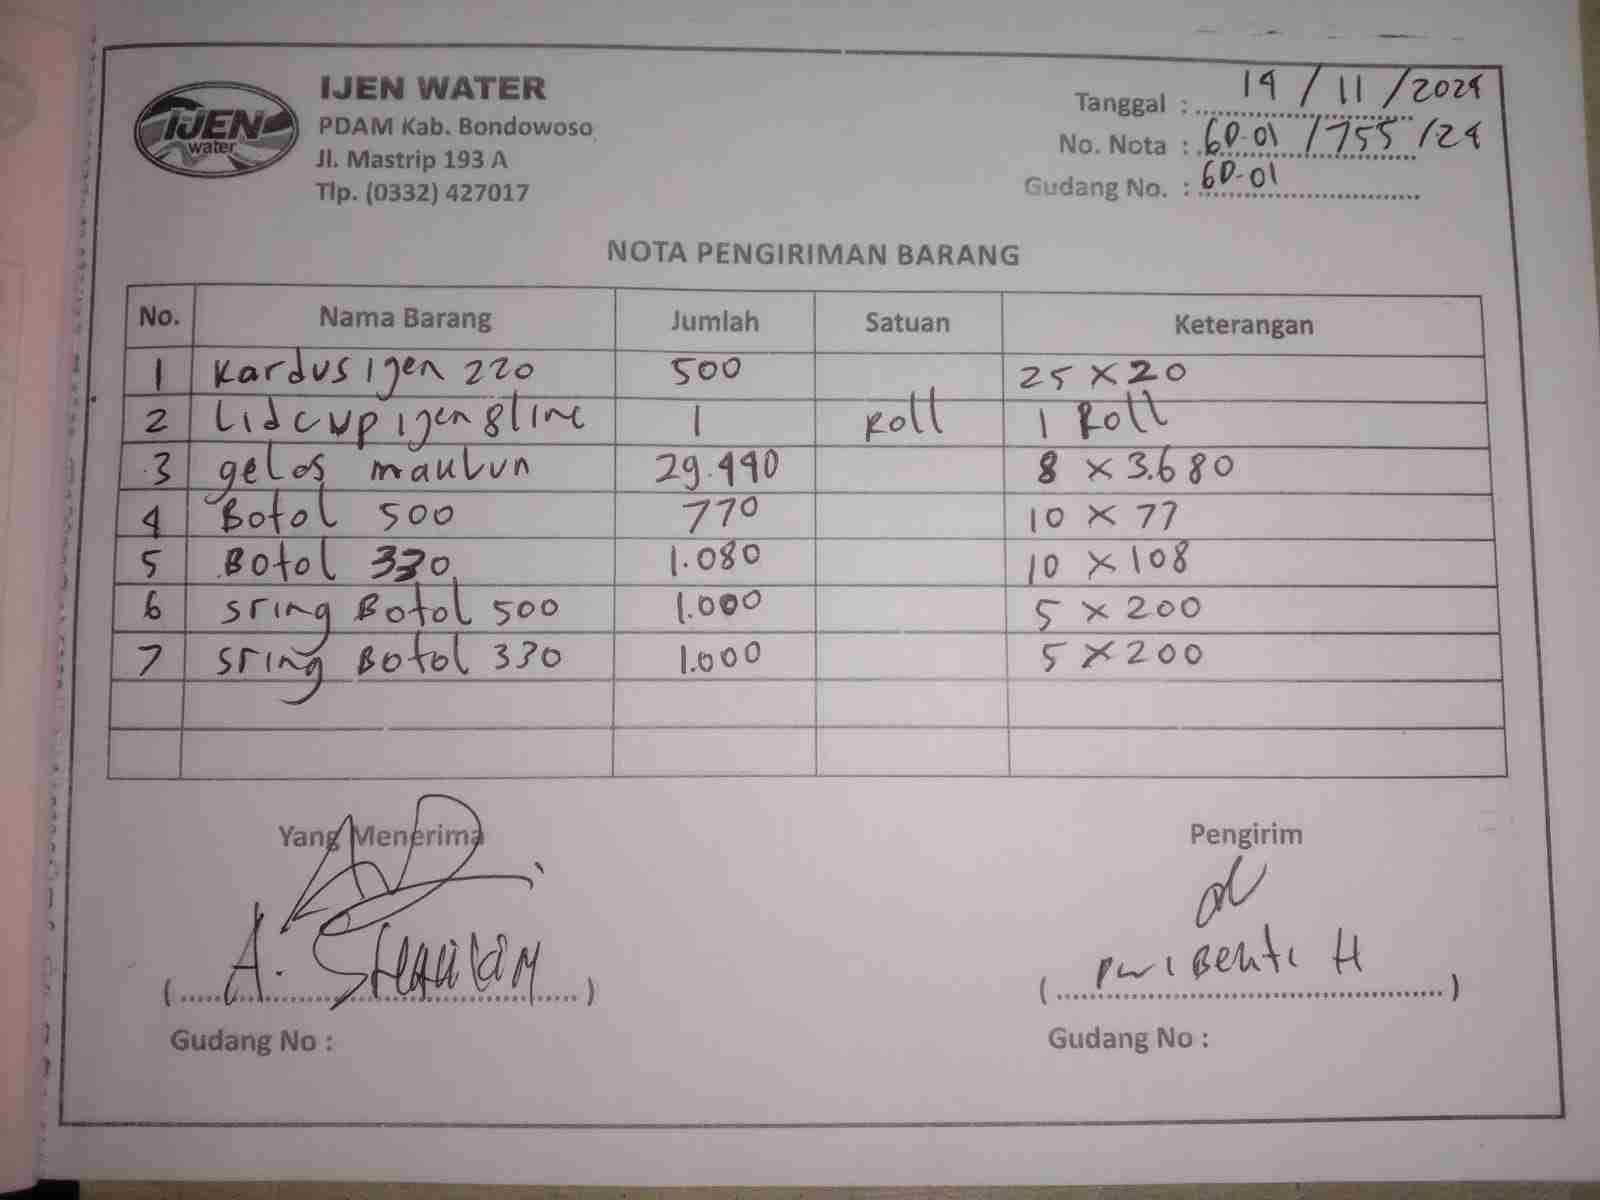 IJEN
water
IJEN WATER
PDAM Kab. Bondowoso
Jl. Mastrip 193 A
Tlp. (0332) 427017
Tanggal : 14 / 11 / 2024
No. Nota : GD-01 / 755 / 24
Gudang No. : GD-01
NOTA PENGIRIMAN BARANG
No. Nama Barang Jumlah Satuan Keterangan
1 Kardus ijen 220 500 25 x 20
2 Lidcup ijen 8 line 1 Roll 1 Roll
3 gelas 29.440 8 x 3.680
4 Botol 500 770 10 x 77
5 Botol 330 1.080 10 x 108
6 sring Botol 500 1.000 5 x 200
7 sring Botol 330 1.000 5 x 200
Yang Menerima Pengirim
( A. ) ( H )
Gudang No : Gudang No :